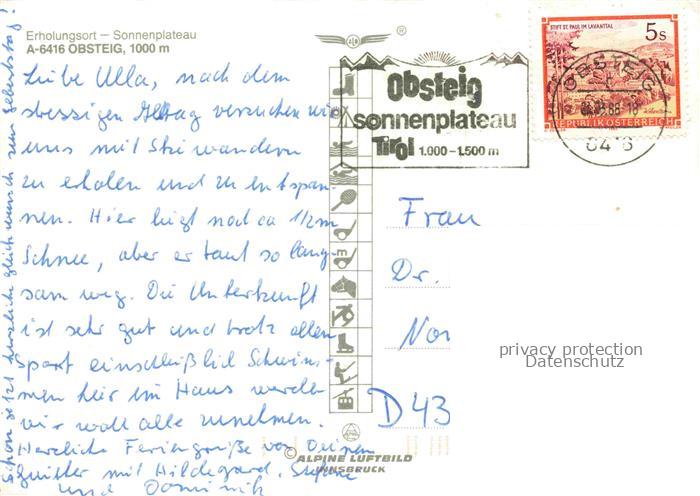 Erholungsort — Sonnenplateau
A-6416 OBSTEIG, 1000 m
Liebe Ulla, nach dem
stressigen Alltag versuchen wir
uns mit Skiwandern
zu erholen und zu entspan-
nen. Hier liegt noch ca 1/2 m
Schnee, aber er taut so lang-
sam weg. Die Unterkunft
ist sehr gut und trotz allen
Sport einschließlich Schwim-
men hier im Haus werden
wir wohl alle zunehmen.
Herzliche Feriengrüße von Deinen
mit Hildegard, Stefanie
und Dominik
Schon jetzt herzliche Glückwunsch zum Geburtstag!
Obsteig
sonnenplateau
Tirol 1.000-1.500 m
STIFT ST. PAUL IM LAVANTTAL
5 S
REPUBLIK ÖSTERREICH
OBSTEIG
Frau
Dr.
D 43
privacy protection
Datenschutz
© ALPINE LUFTBILD
INNSBRUCK